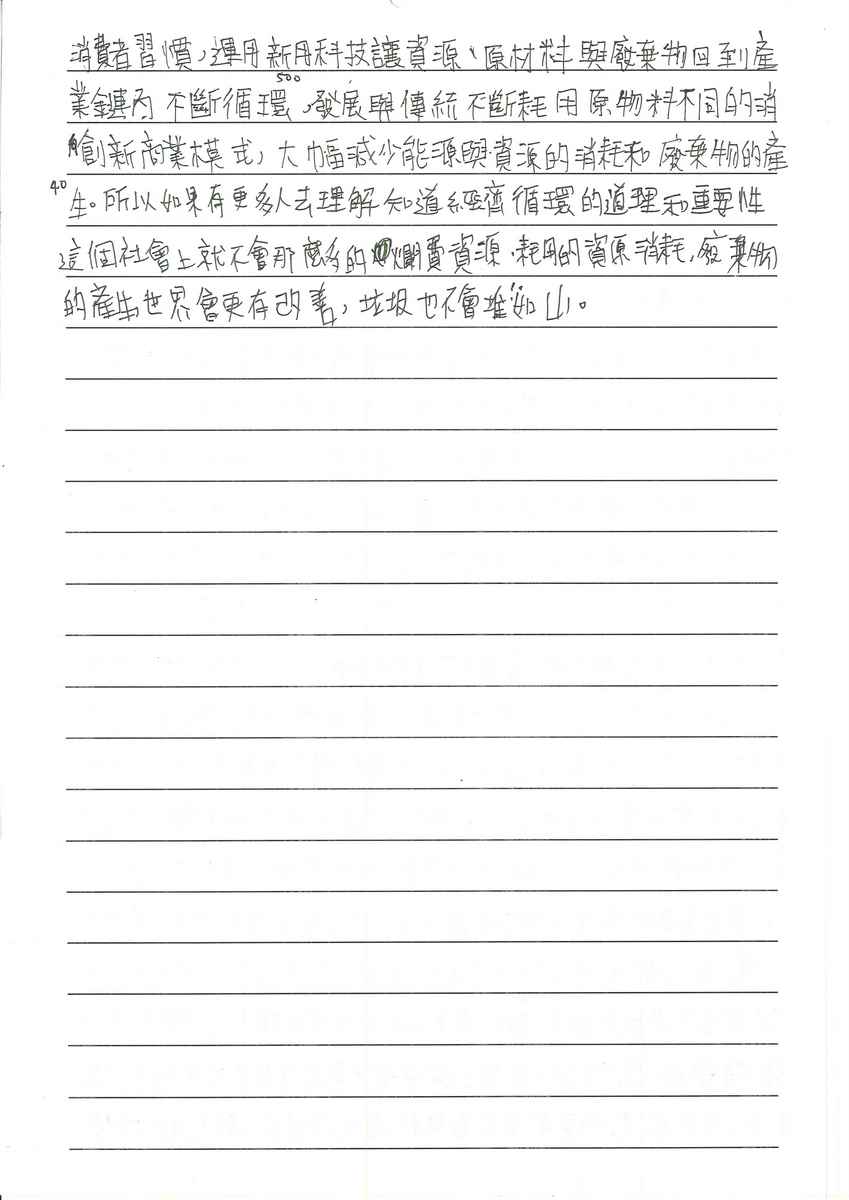 消費者習慣，運用新用科技讓資源、原材料與廢棄物回到產
500
業鏈內不斷循環，發展與傳統不斷耗用原物料不同的消
創新商業模式，大幅減少能源與資源的消耗和廢棄物的產
40
生。所以如果有更多人去理解知道經濟循環的道理和重要性
這個社會上就不會那麼多的爛費資源．耗用的資源消耗，廢棄物
的產生世界會更有改善，垃圾也不會堆如山。